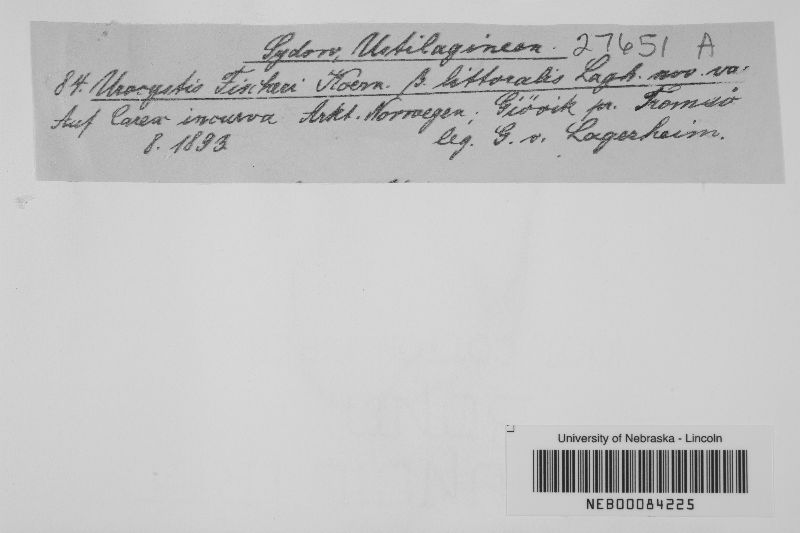 Sydow, Ustilagineen. 27651 A
84. Urocystis Fischeri Koern. β. littoralis Lagh. nov. va.
Auf Carex incurva Arkt. Norwegen; Giövik pr. Tromsö
8. 1893 leg. G. v. Lagerheim.
University of Nebraska - Lincoln
NEB00084225